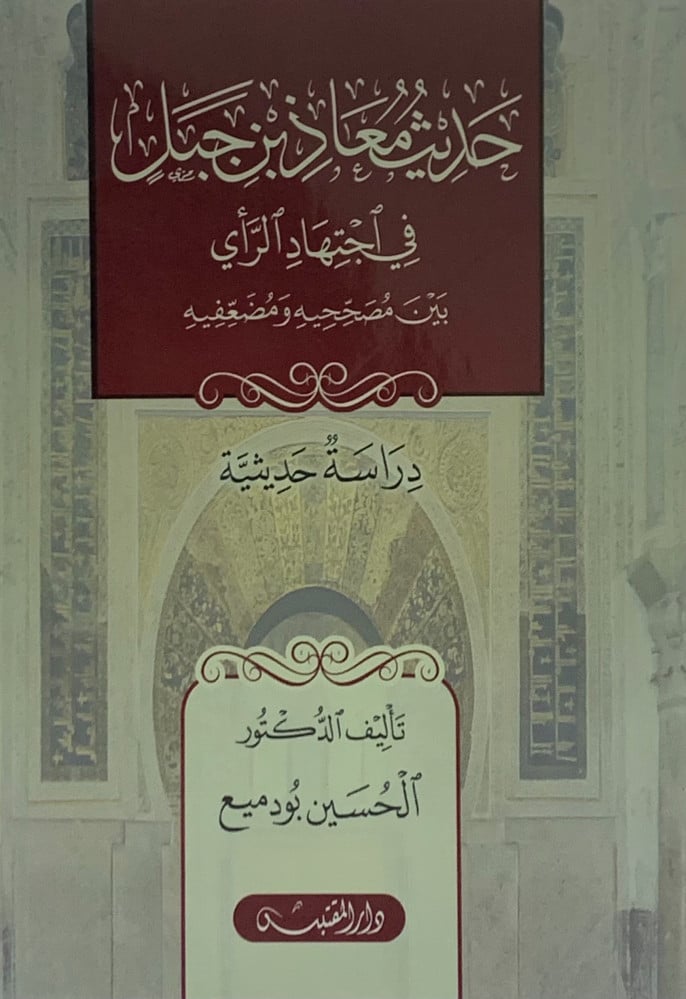 حَدِيثُ مُعَاذِ بْنِ جَبَلٍ
فِي ٱجْتِهَادِ ٱلرَّأْيِ
بَيْنَ مُصَحِّحِيهِ وَمُضَعِّفِيهِ
دِرَاسَةٌ حَدِيثِيَّة
تَأْلِيْف ٱلدُّكْتُور
ٱلْحُسَيْن بُودميع
دار المقتبس